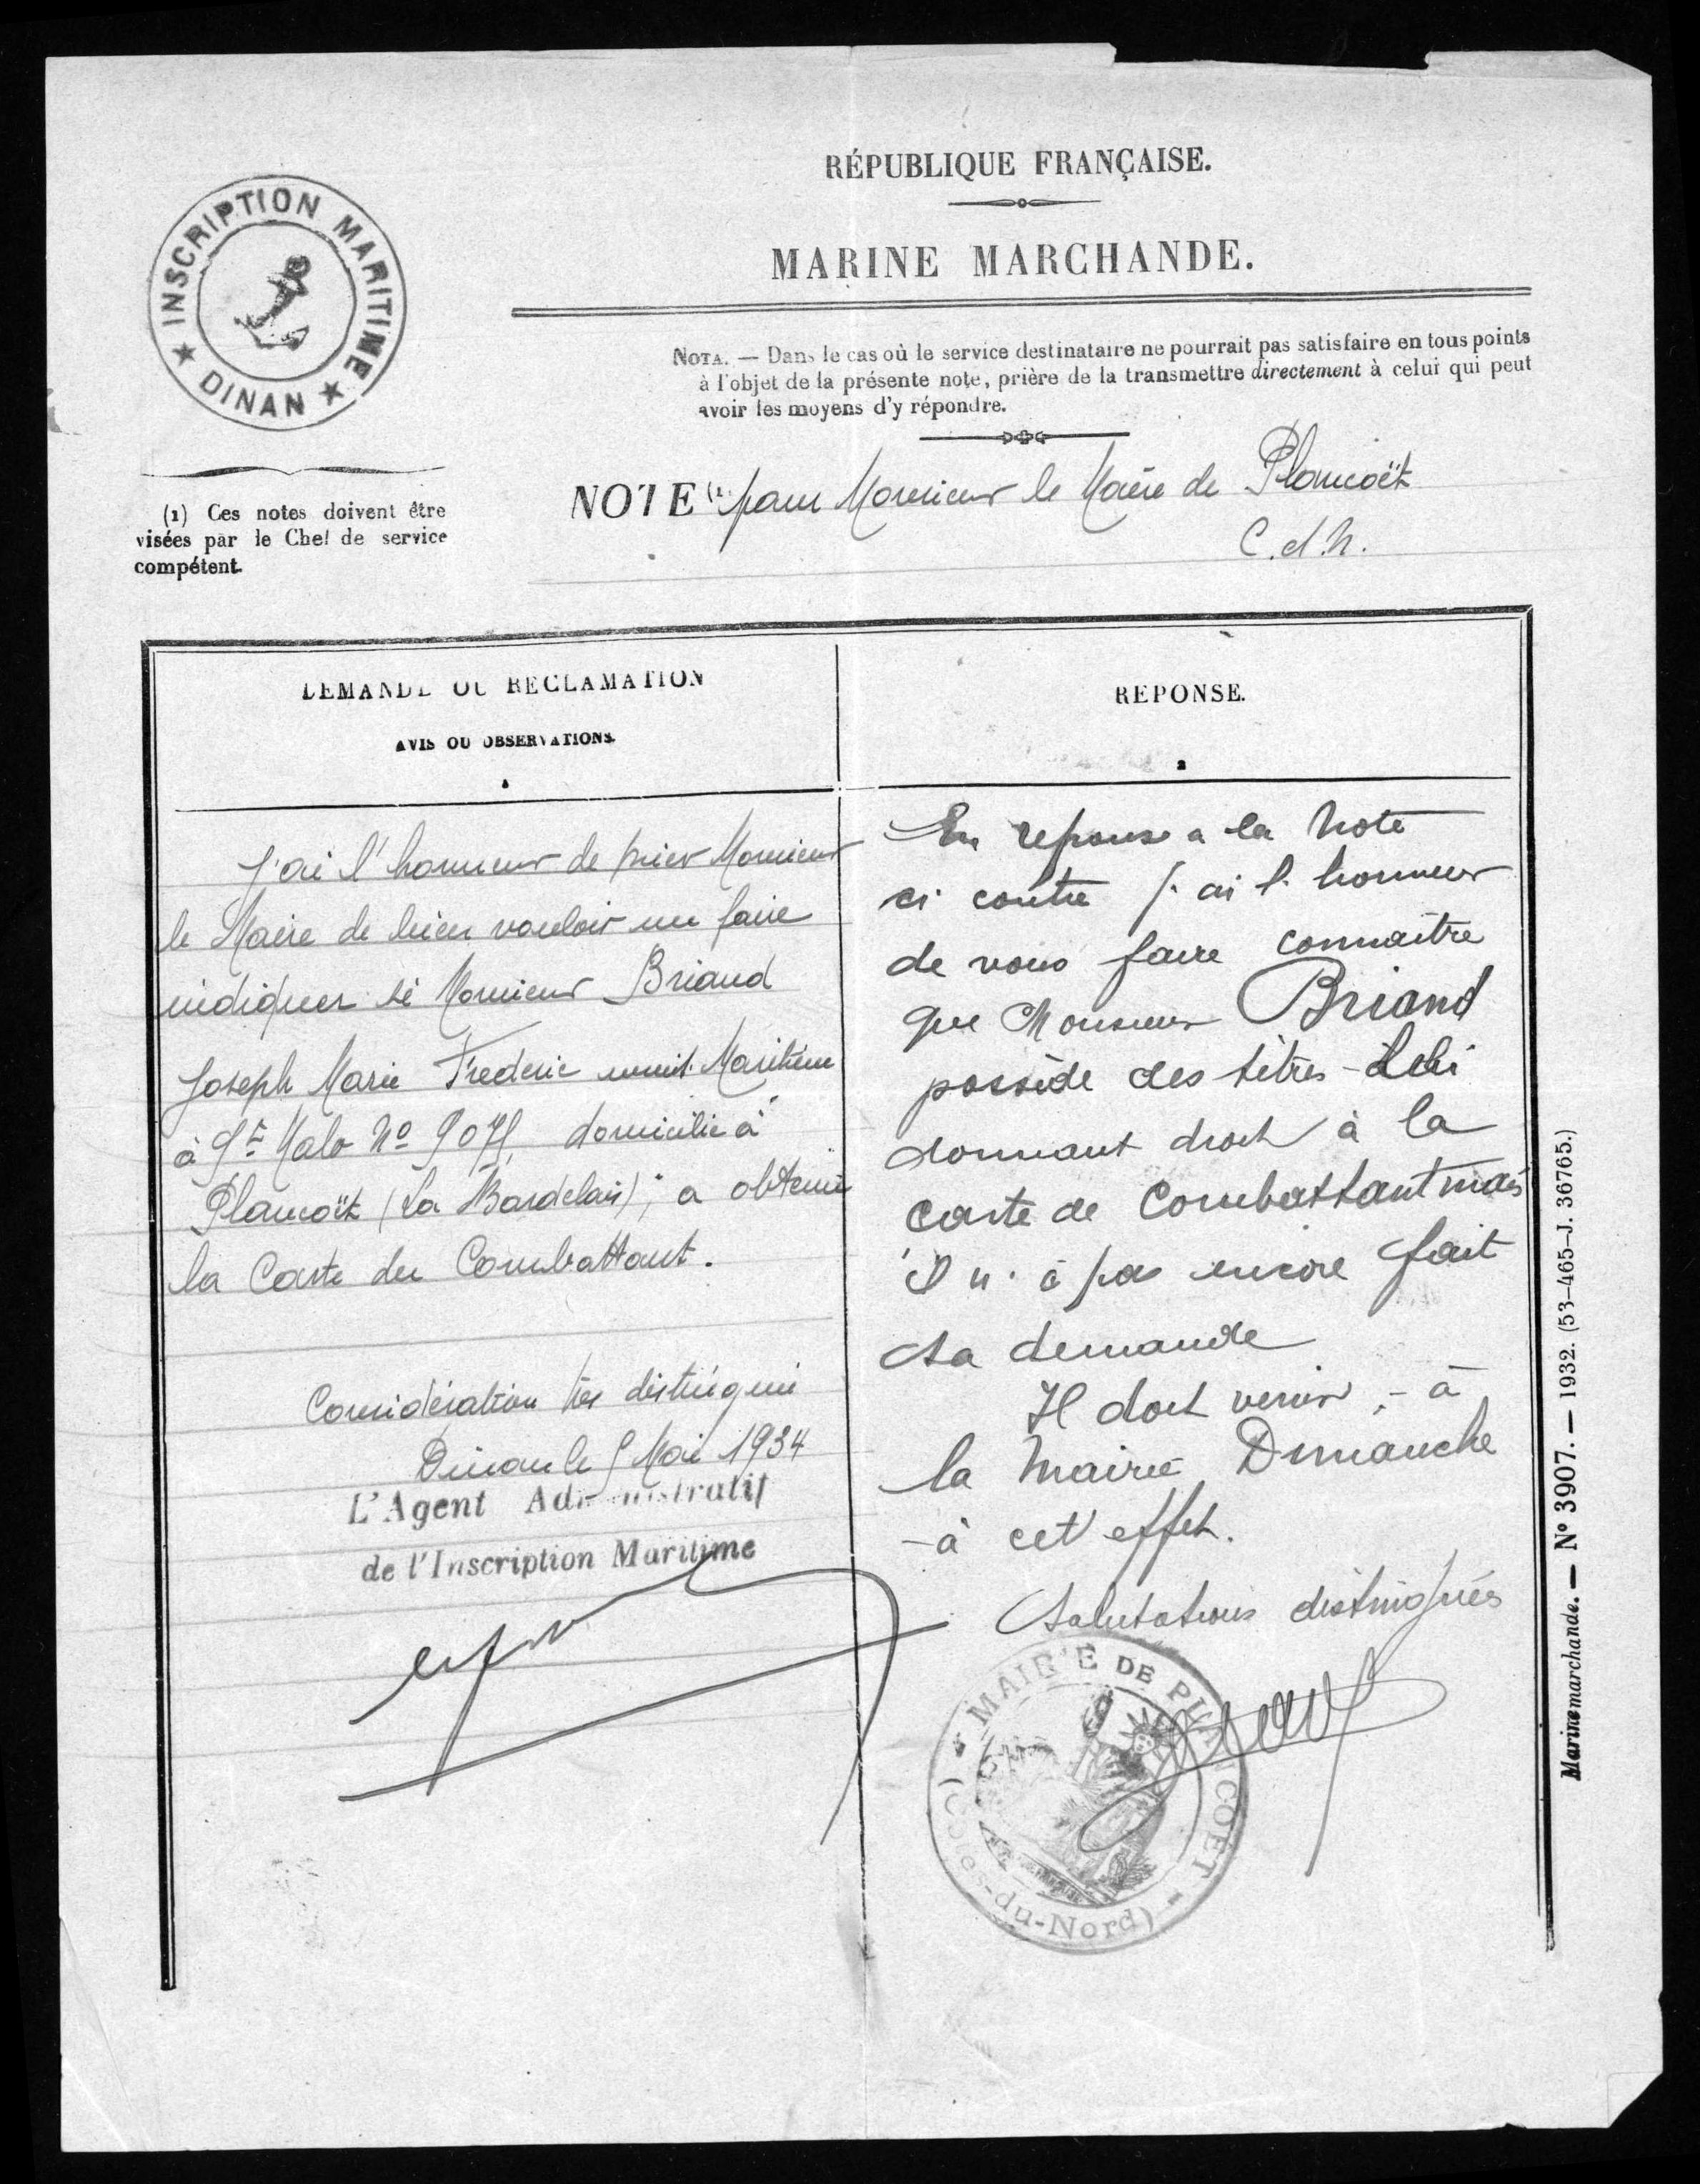 RÉPUBLIQUE FRANÇAISE.
MARINE MARCHANDE.
INSCRIPTION MARITIME
★ DINAN ★
NOTA. — Dans le cas où le service destinataire ne pourrait pas satisfaire en tous points
à l'objet de la présente note, prière de la transmettre directement à celui qui peut
avoir les moyens d'y répondre.
(1) Ces notes doivent être
visées par le Chef de service
compétent.
NOTE (1) pour Monsieur le Maire de Plancoët
C.d.N.
DEMANDE OU RÉCLAMATION
AVIS OU OBSERVATIONS.
1
J'ai l'honneur de prier Monsieur
le Maire de bien vouloir me faire
indiquer si Monsieur Briand
Joseph Marie Frederic Maritime
à St Malo No domicilié à
Plancoët (La Bardelais), a obtenu
la Carte du Combattant.
Considération très distinguée
Dinan le Mai 1934
L'Agent Administratif
de l'Inscription Maritime
REPONSE.
2
En reponse a la Note
ci contre j'ai l'honneur
de vous faire connaître
que Monsieur Briand
possède des titres
donnant droit à la
carte de Combattant mais
il n'a pas encore fait
sa demande
Il doit venir à
la Mairie Dimanche
à cet effet.
Salutations distinguées
MAIRIE DE PLANCOET
(Côtes-du-Nord)
Marine marchande. — N° 3907. — 1932. (53-465-J. 36765.)